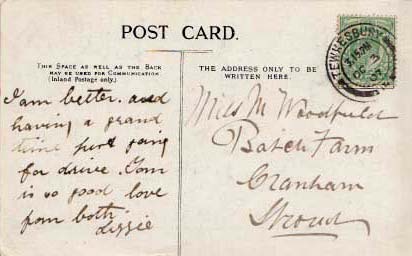 POST CARD.
THIS SPACE AS WELL AS THE BACK
MAY BE USED FOR COMMUNICATION
(Inland Postage only.)
THE ADDRESS ONLY TO BE
WRITTEN HERE.
TEWKESBURY
OC 3
07
I am better. and
having a grand
time just going
for drive. Tom
is so good love
from both
Lizzie
Miss M Woodfield
Batch Farm
Cranham
Stroud